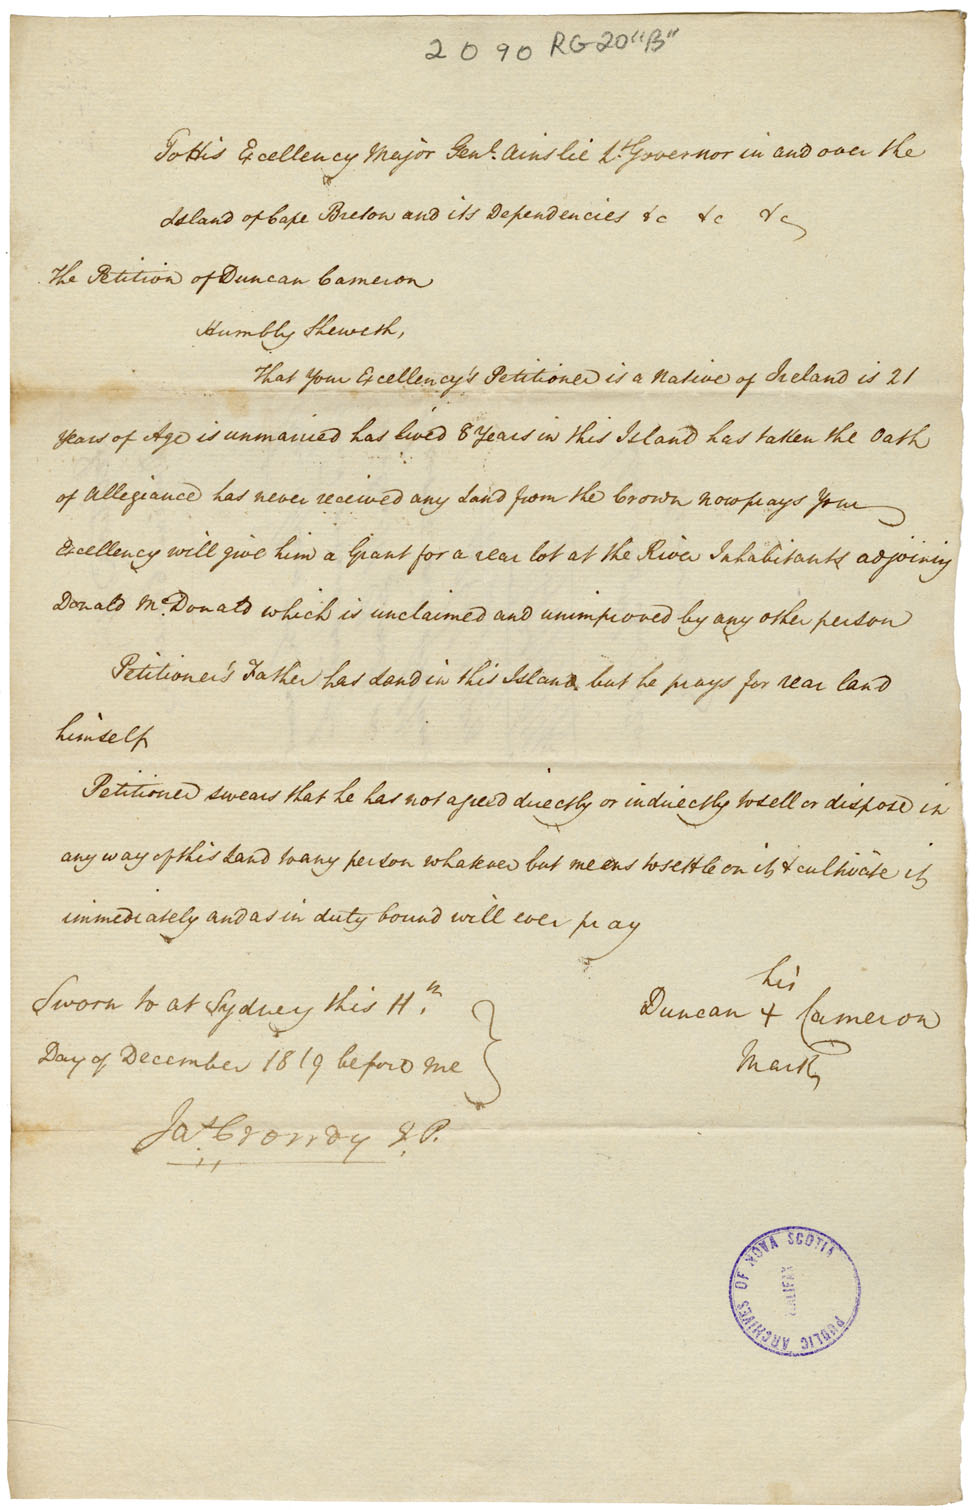 2090 RG20"B"
To His Excellency Major Genl. Ainslie Lt Governor in and over the
Island of Cape Breton and its Dependencies &c &c &c
The Petition of Duncan Cameron
Humbly Sheweth,
That Your Excellency's Petitioner is a Native of Ireland is 21
Years of Age is unmarried has lived 8 Years in this Island has taken the Oath
of Allegiance has never received any Land from the Crown now prays Your
Excellency will give him a Grant for a rear lot at the River Inhabitants adjoining
Donald McDonald which is unclaimed and unimproved by any other person
Petitioner's Father has Land in this Island but he prays for rear land
himself
Petitioner swears that he has not agreed directly or indirectly to sell or dispose in
any way of this Land to any person whatever but means to settle on it & cultivate it
immediately and as in duty bound will ever pray
his
Duncan + Cameron
Mark
Sworn to at Sydney this
Day of December 1819 before me
Jas Crowdy J.P.
PUBLIC ARCHIVES OF NOVA SCOTIA
HALIFAX